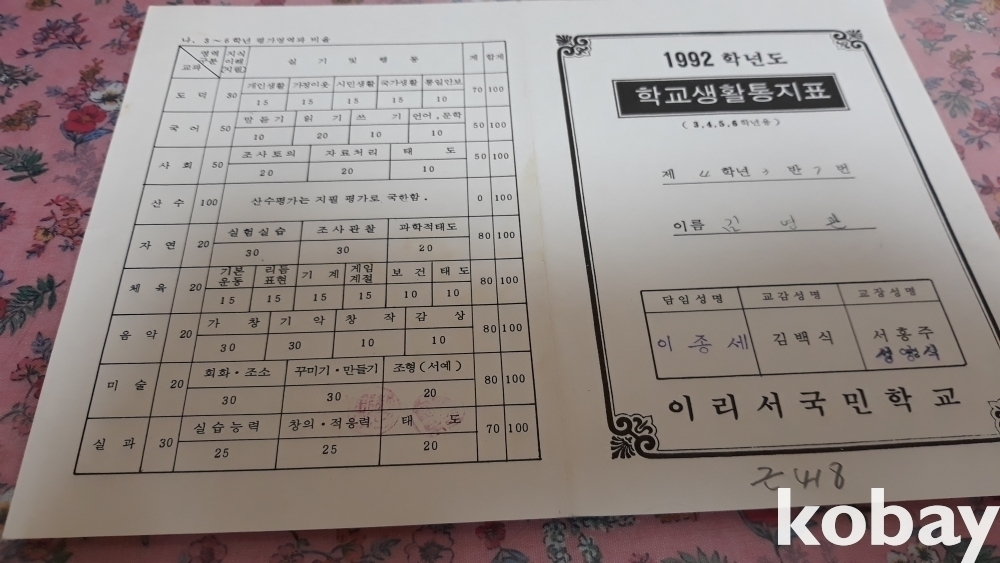 나. 3~6학년 평가영역과 비율
영역
구분
교과
지식
이해
지필
실 기 및 행 동
계
합계
도 덕 30 개인생활 가정이웃 시민생활 국가생활 통일안보 70 100
15 15 15 15 10
국 어 50 말 듣 기 읽 기 쓰 기 언어, 문학 50 100
10 20 10 10
사 회 50 조 사 토 의 자 료 처 리 태 도 50 100
20 20 10
산 수 100 산수평가는 지필 평가로 국한함. 0 100
자 연 20 실험실습 조사관찰 과학적태도 80 100
30 30 20
체 육 20 기본운동 리듬표현 기 계 게임계절 보 건 태 도 80 100
15 15 15 15 10 10
음 악 20 가 창 기 악 창 작 감 상 80 100
30 30 10 10
미 술 20 회화·조소 꾸미기·만들기 조형(서예) 80 100
30 30 20
실 과 30 실습능력 창의·적응력 태 도 70 100
25 25 20
1992 학년도
학교생활통지표
(3,4,5,6학년용)
제 4 학년 3 반 7 번
이름 김 영
담임성명 교감성명 교장성명
이 종 세 김백식 서홍주
이 리 서 국 민 학 교
418
kobay